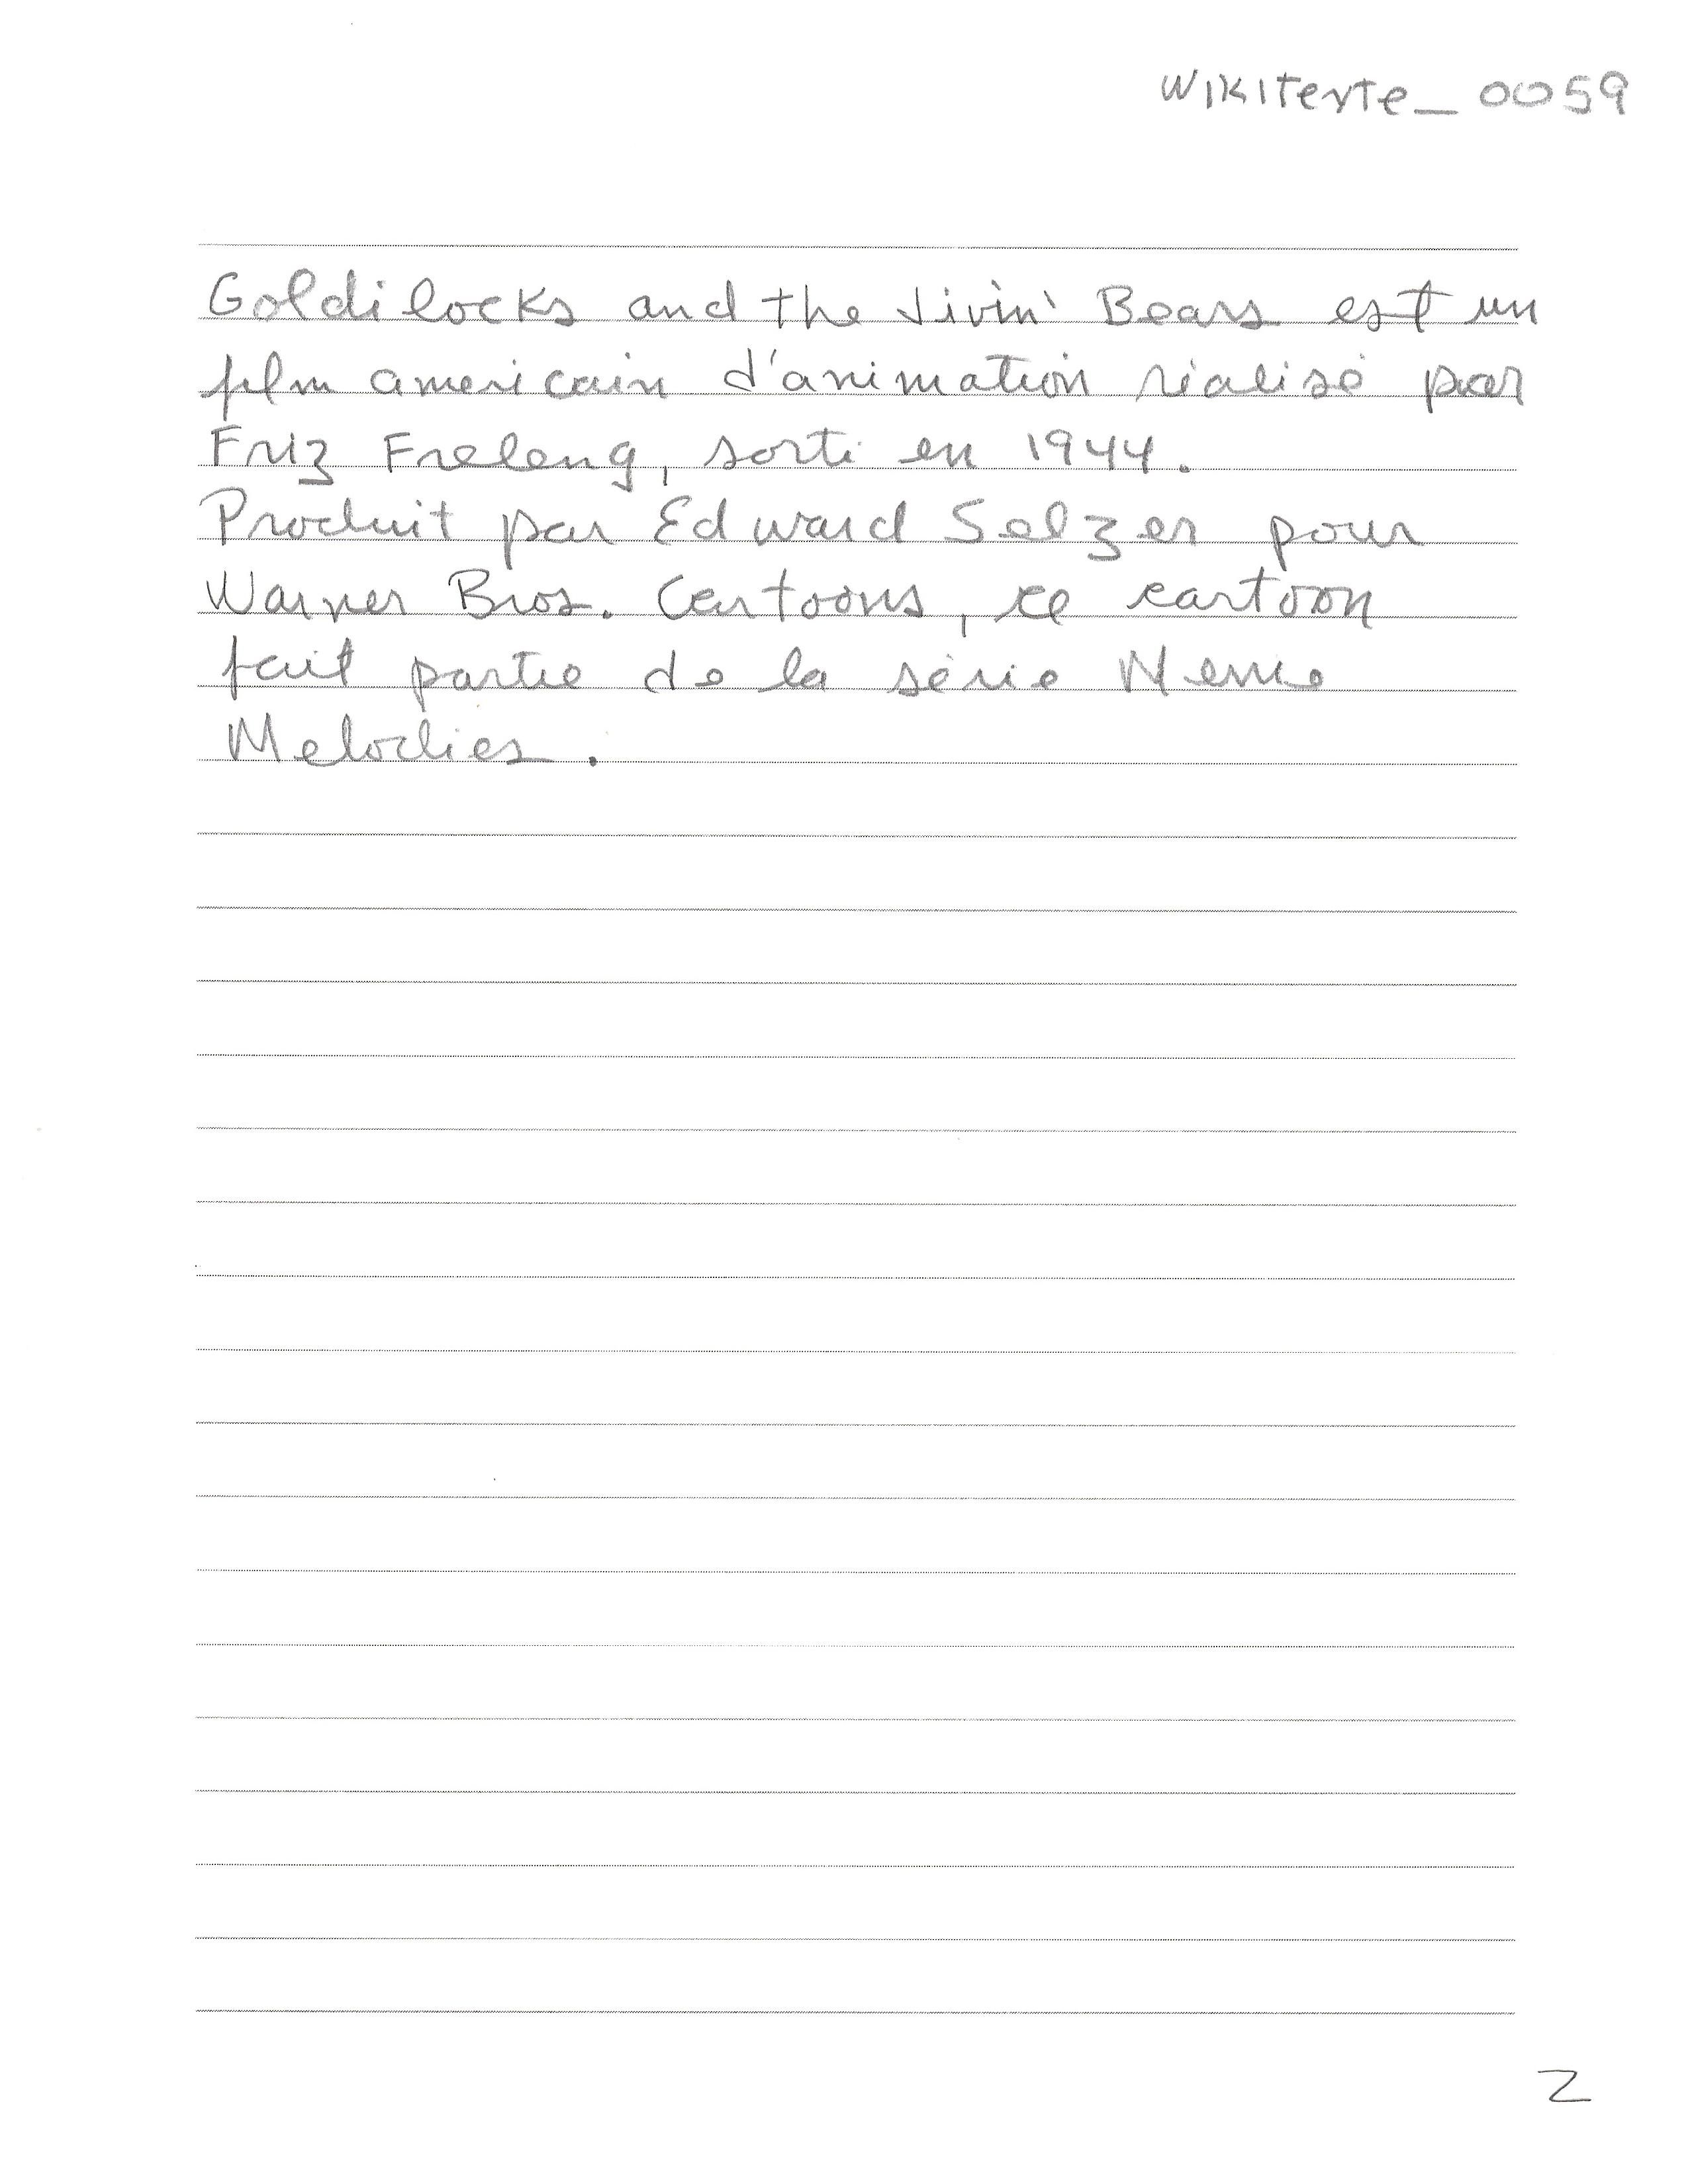 Wikitexte_0059
Goldilocks and the Jivin' Bears est un
film americain d'animation réalisé par
Friz Freleng, sorti en 1944.
Produit par Edward Selzer pour
Warner Bros. Cartoons, ce cartoon
fait partie de la série Merrie
Melodies.
2